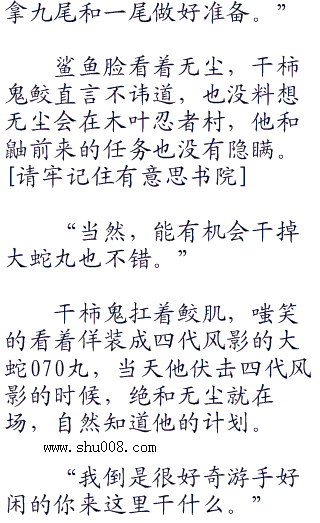 拿九尾和一尾做好准备。”
鲨鱼脸看着无尘，干柿
鬼鲛直言不讳道，也没料想
无尘会在木叶忍者村，他和
鼬前来的任务也没有隐瞒。
[请牢记住有意思书院]
“当然，能有机会干掉
大蛇丸也不错。”
干柿鬼扛着鲛肌，嗤笑
的看着佯装成四代风影的大
蛇070丸，当天他伏击四代风
影的时候，绝和无尘就在
场，自然知道他的计划。
www.shu008.com
“我倒是很好奇游手好
闲的你来这里干什么。”